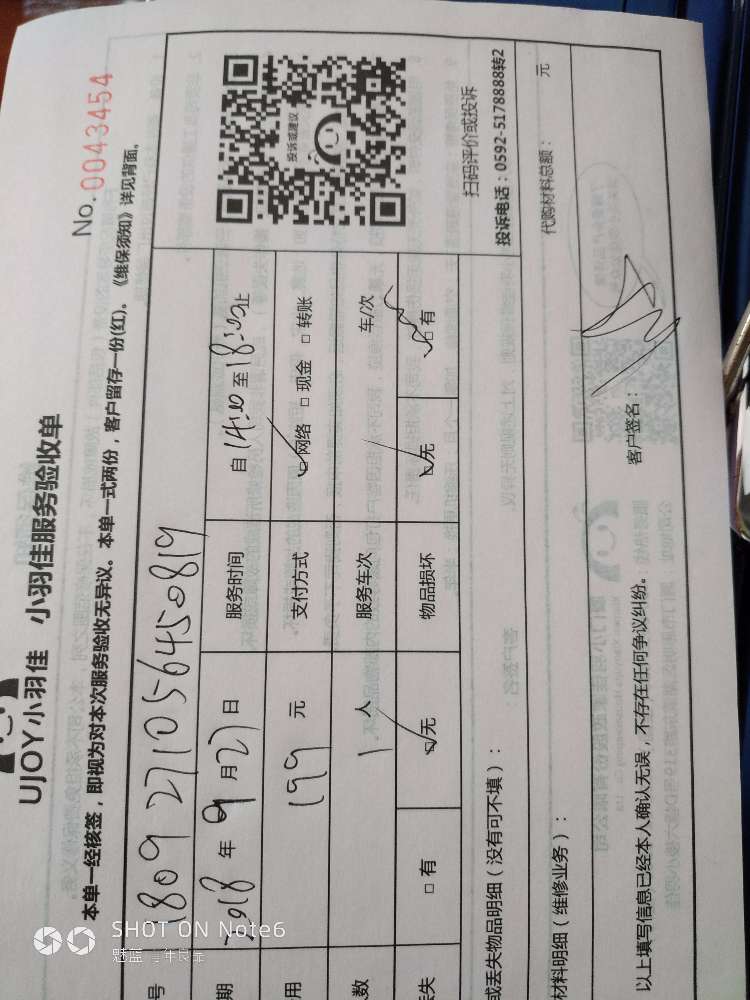 UJOY小羽佳 小羽佳服务验收单
No. 0043454
本单一经核签，即视为对本次服务验收无异议。本单一式两份，客户留存一份(红)。《维保须知》详见背面。
号 1809271056450819
期 2018 年 9 月 27 日 服务时间 自 14:00 至 18:00 止
用 199 元 支付方式 ☑网络 □现金 □转账
数 1 人 服务车次 / 车/次
失 □有 ☑无 物品损坏 ☑无 □有
投诉或建议
扫码评价或投诉
投诉电话：0592-5178888转2
或丢失物品明细（没有可不填）：
材料明细（维修业务）： 代购材料总额： 元
以上填写信息已经本人确认无误，不存在任何争议纠纷。 客户签名：
SHOT ON Note6